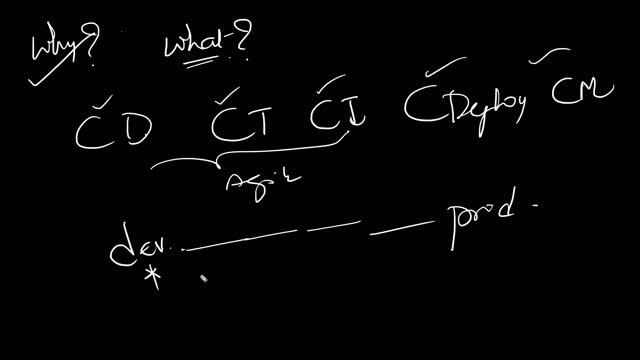 Why? What?
CD CT CI CDeploy CM
Agile
dev. prod.
*